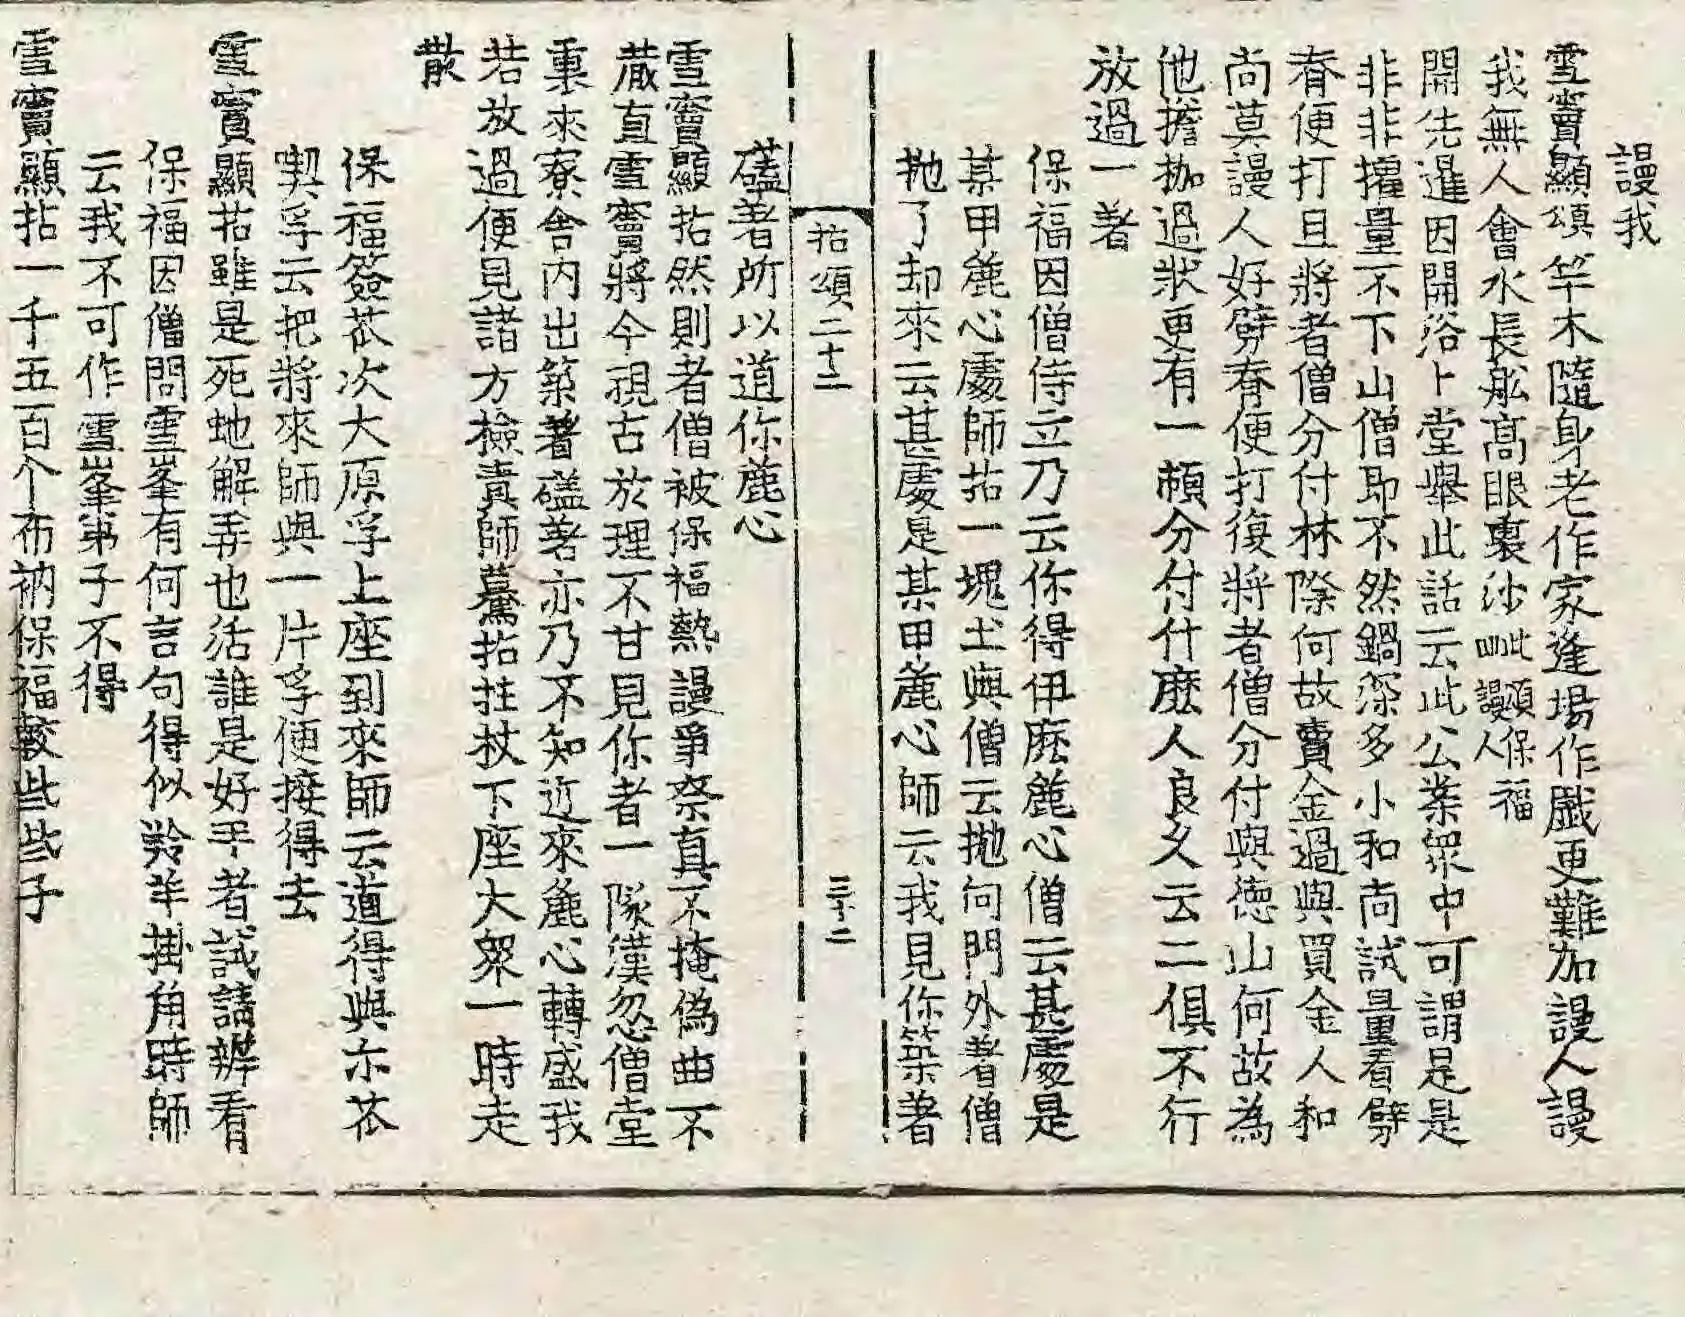 謾我
雪竇顯頌竿木隨身老作家逢場作戲更難加謾人謾
我無人會水長舩高眼裏沙此頌保福謾人
開先暹因開浴上堂舉此話云此公案衆中可謂是是
非非攉量不下山僧即不然鍋深多小和尚試量看劈
脊便打且將者僧分付林際何故賣金過與買金人和
尚莫謾人好劈脊便打復將者僧分付與德山何故為
他擔枷過狀更有一頼分付什麽人良久云二俱不行
放過一著
保福因僧侍立乃云你得伊麽麁心僧云甚處是
某甲麁心處師拈一塊土與僧云抛向門外著僧
抛了却來云甚處是某甲麁心師云我見你築著
拈頌二十二
三十二
磕著所以道你麁心
雪竇顯拈然則者僧被保福熱謾爭奈真不掩偽曲不
蔵直雪竇將今視古於理不甘見你者一隊漢忽僧堂
裏來寮舍內出築著磕著亦乃不知近來麁心轉盛我
若放過便見諸方檢責師驀拈拄杖下座大衆一時走
散
保福簽苽次大原孚上座到來師云道得與尒苽
喫孚云把將來師與一片孚便接得去
雪竇顯拈雖是死虵解弄也活誰是好手者試請辨看
保福因僧問雪峯有何言句得似羚羊掛角時師
云我不可作雪峯弟子不得
雪竇顯拈一千五百个布衲保福較些些子